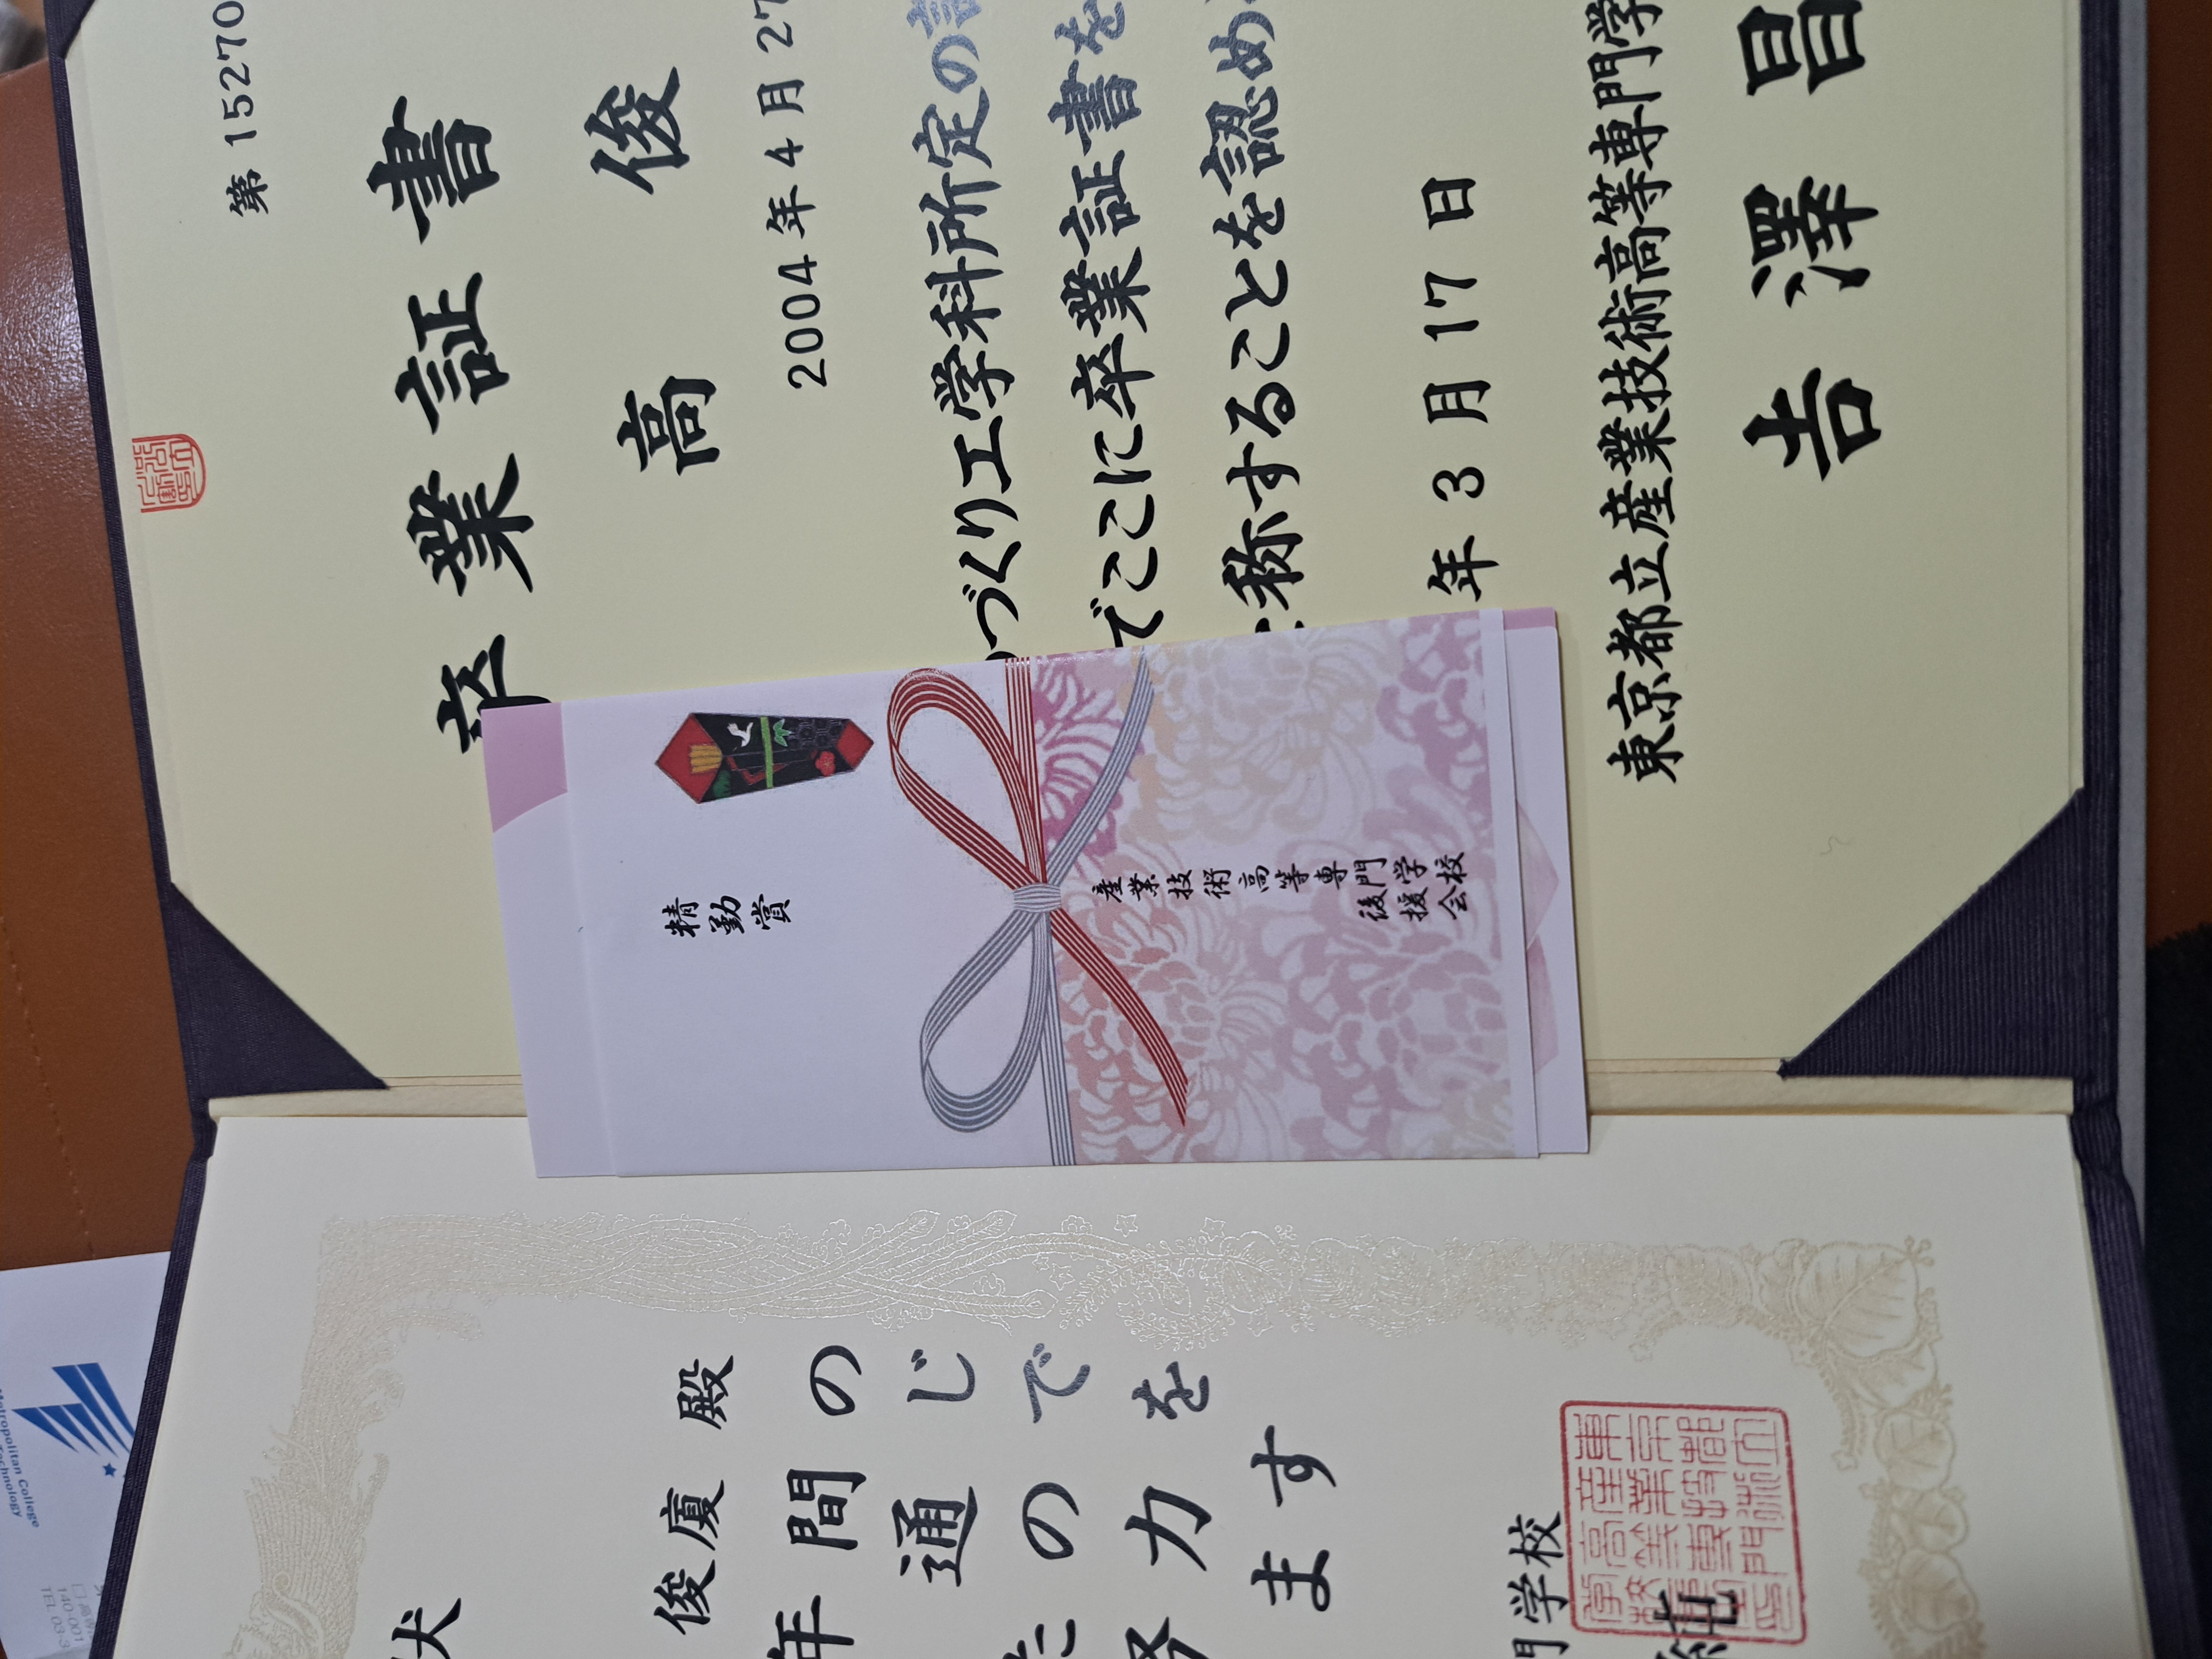 第 15270
卒業証書
高 俊
2004年4月27
づくり工学科所定の
でここに卒業証書を
称することを認め
年3月17日
東京都立産業技術高等専門学
吉澤昌
精勤賞
産業技術高等専門学校
後援会
俊廈 殿
年間の
通じ
での
力を
ます
門学校
純
Metropolitan College
Technology
140-001
TEL 03-3